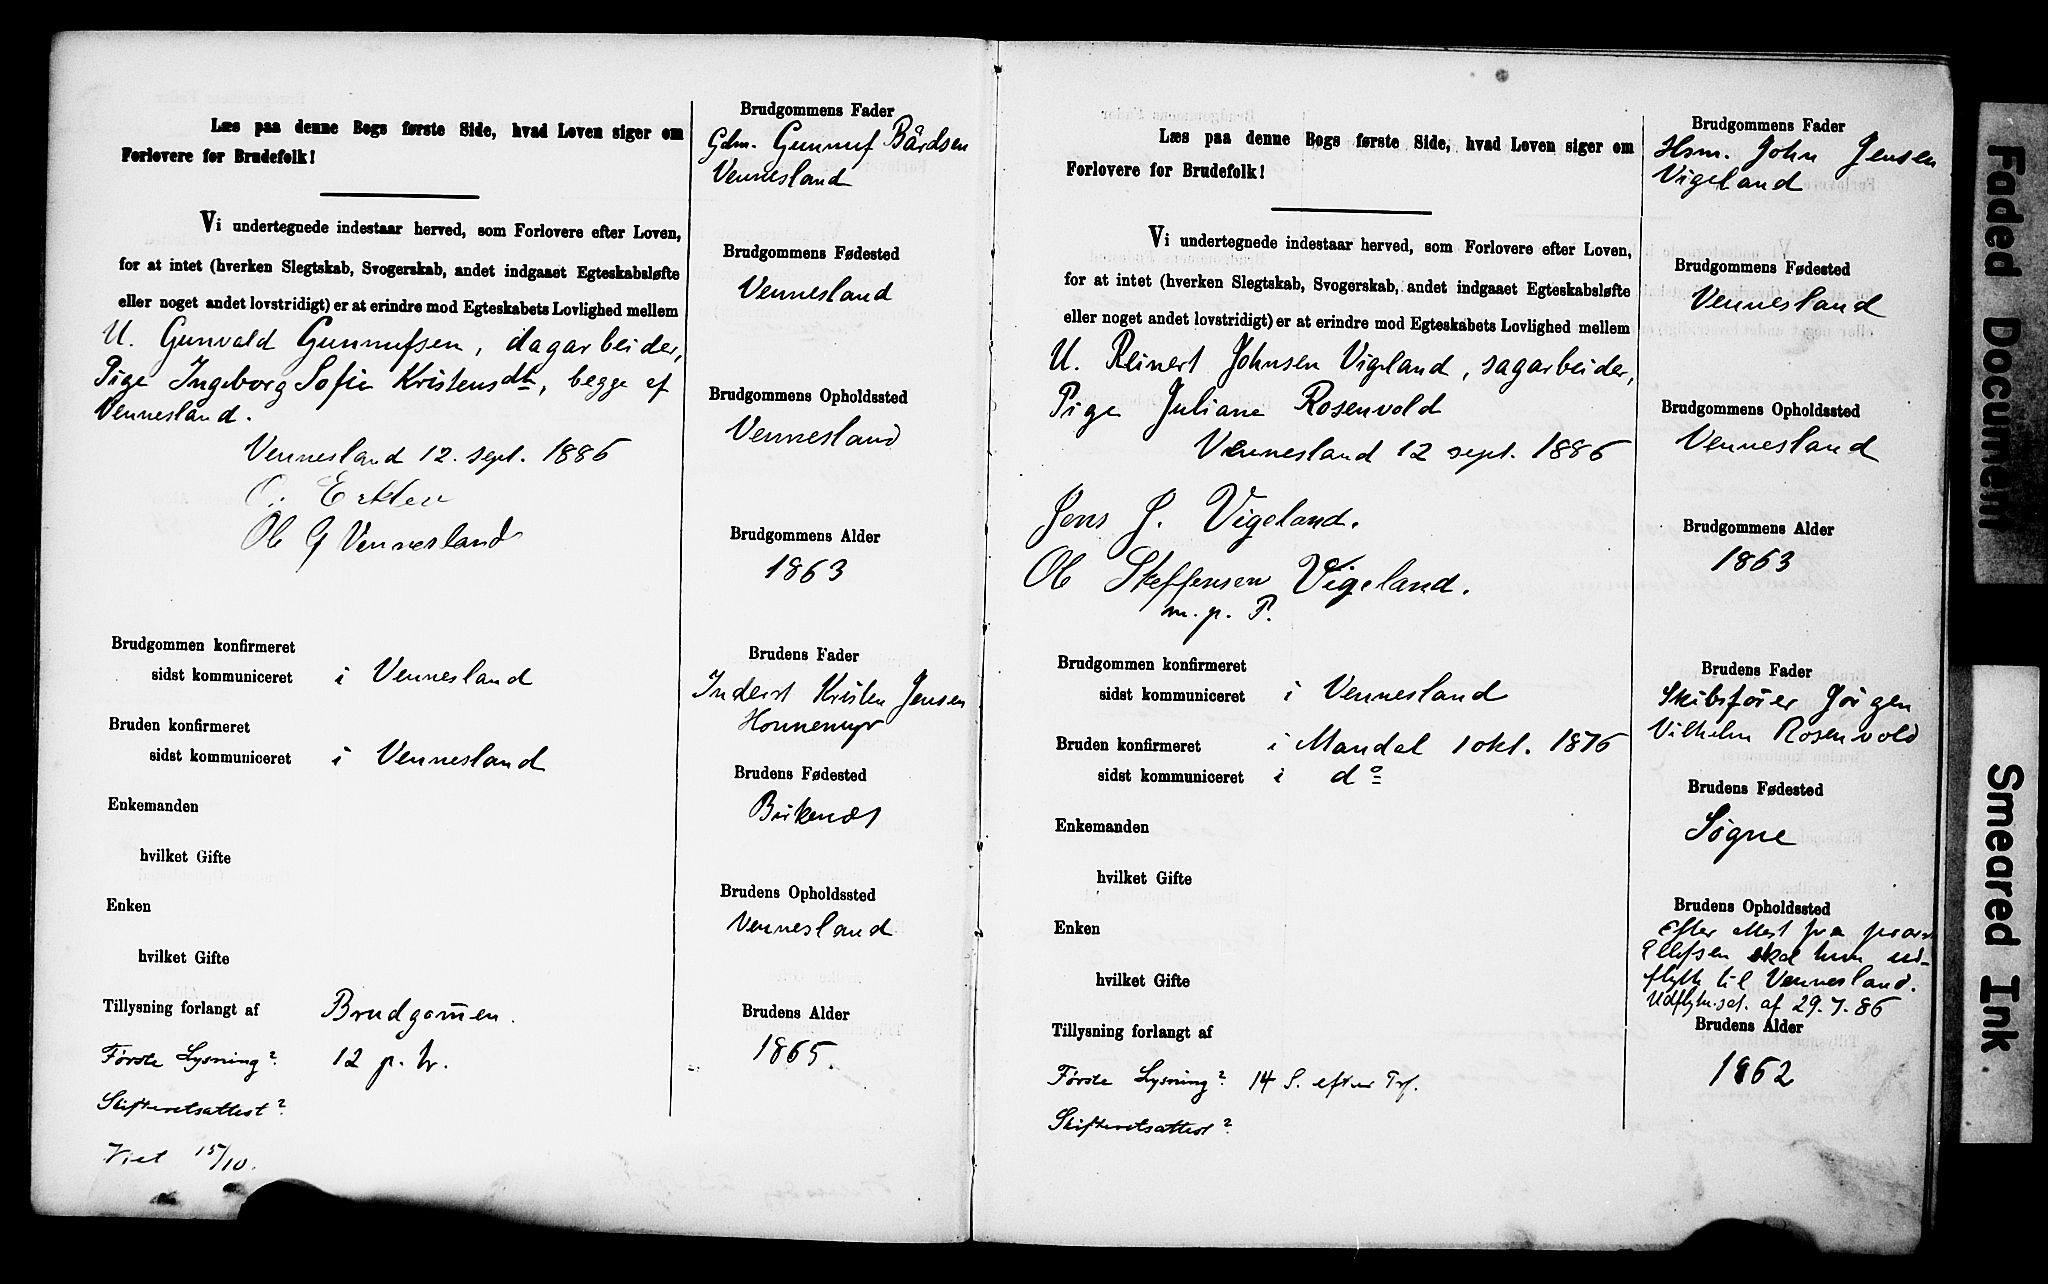 Læs paa denne Bogs første Side, hvad Loven siger om
Forlovere for Brudefolk!
Vi undertegnede indestaar herved, som Forlovere efter Loven,
for at intet (hverken Slegtskab, Svogerskab, andet indgaaet Egteskabsløfte
eller noget andet lovstridigt) er at erindre mod Egteskabets Lovlighed mellem
U. Gunvald Gunnufsen, dagarbeider,
Pige Ingeborg Sofie Kristensdt, begge af
Vennesland.
Vennesland 12. sept. 1886
Ole G Vennesland
Brudgommen konfirmeret
sidst kommuniceret i Vennesland
Bruden konfirmeret
sidst kommuniceret i Vennesland
Enkemanden
hvilket Gifte
Enken
hvilket Gifte
Tillysning forlangt af Brudgom̄en.
Første Lysning? 12 p. tr.
Skifteretsattest?
Viet 15/10.
Brudgommens Fader
Gdm. Gunnuf Bårdsen
Vennesland
Brudgommens Fødested
Vennesland
Brudgommens Opholdssted
Vennesland
Brudgommens Alder
1863
Brudens Fader
Inderst Kristen Jensen
Honnemyr
Brudens Fødested
Birkenæs
Brudens Opholdssted
Vennesland
Brudens Alder
1865.
Læs paa denne Bogs første Side, hvad Loven siger om
Forlovere for Brudefolk!
Vi undertegnede indestaar herved, som Forlovere efter Loven,
for at intet (hverken Slegtskab, Svogerskab, andet indgaaet Egteskabsløfte
eller noget andet lovstridigt) er at erindre mod Egteskabets Lovlighed mellem
U. Reinert Johnsen Vigeland, sagarbeider,
Pige Juliane Rosenvold
Vennesland 12 sept. 1886
Jens J. Vigeland.
Ole Steffensen Vigeland.
m. p. P.
Brudgommen konfirmeret
sidst kommuniceret i Vennesland
Bruden konfirmeret i Mandal 1 okt. 1876
sidst kommuniceret i do
Enkemanden
hvilket Gifte
Enken
hvilket Gifte
Tillysning forlangt af
Første Lysning? 14 S. efter Trf.
Skifteretsattest?
Brudgommens Fader
Hsm. John Jensen
Vigeland
Brudgommens Fødested
Vennesland
Brudgommens Opholdssted
Vennesland
Brudgommens Alder
1863
Brudens Fader
Skibsfører Jørgen
Vilhelm Rosenvold
Brudens Fødested
Søgne
Brudens Opholdssted
Efter Attest fra
Ellefsen skal hun ud-
flytte til Vennesland.
Udflytn.sat. af 29.7.86
Brudens Alder
1862
Faded Document
Smeared Ink